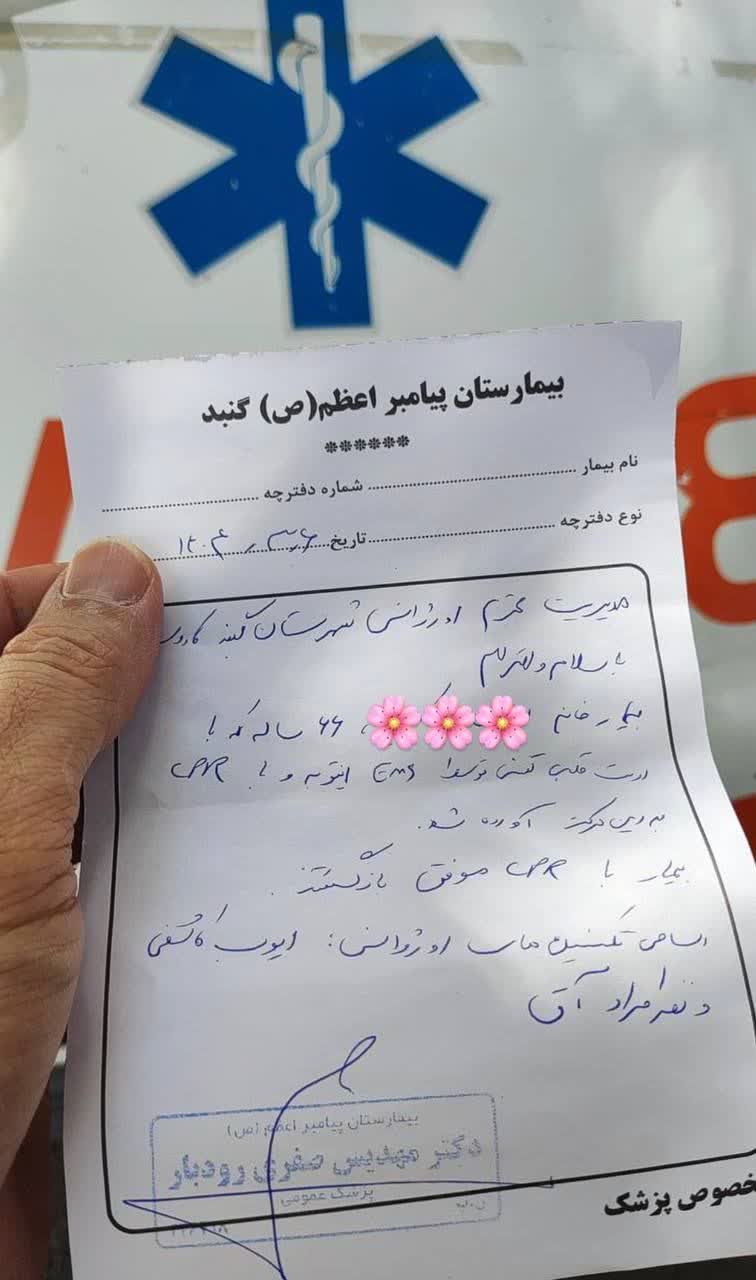 بیمارستان پیامبر اعظم(ص) گنبد
******
نام بیمار ........ شماره دفترچه ........
نوع دفترچه ........ تاریخ ........
مدیریت محترم اورژانس شهرستان گنبد کاووس
با سلام و احترام
بیمار خانم ۶۶ ساله که با
ارست قلبی تنفسی توسط EMS اینتوبه و با CPR
به این مرکز آورده شد.
بیمار با CPR موفق بازگشتند.
اسامی تکنسین های اورژانس: ایوب کاشفی
و نقد آق
بیمارستان پیامبر اعظم (ص)
دکتر مهدیس صفری رودبار
پزشک عمومی
مخصوص پزشک